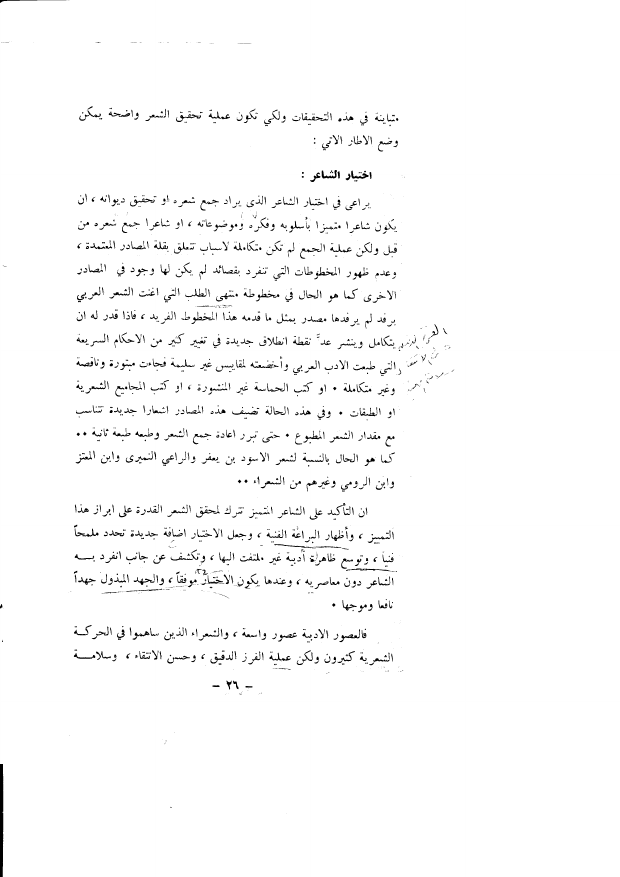 متباينة في هذه التحقيقات ولكي تكون عملية تحقيق الشعر واضحة يمكن
وضع الاطار الاتي :
اختيار الشاعر :
يراعى في اختيار الشاعر الذي يراد جمع شعره او تحقيق ديوانه ، ان
يكون شاعرا متميزا بأسلوبه وفكره وموضوعاته ، او شاعرا جمع شعره من
قبل ولكن عملية الجمع لم تكن متكاملة لاسباب تتعلق بقلة المصادر المعتمدة ،
وعدم ظهور المخطوطات التي تنفرد بقصائد لم يكن لها وجود في المصادر
الاخرى كما هو الحال في مخطوطة منتهى الطلب التي اغنت الشعر العربي
برفد لم يرفدها مصدر بمثل ما قدمه هذا المخطوط الفريد ، فاذا قدر له ان
يتكامل وينشر عدّ نقطة انطلاق جديدة في تغيير كثير من الاحكام السريعة
التي طبعت الادب العربي وأخضعته لمقاييس غير سليمة فجاءت مبتورة وناقصة
وغير متكاملة • او كتب الحماسة غير المنشورة ، او كتب المجاميع الشعرية
او الطبقات • وفي هذه الحالة تضيف هذه المصادر اشعارا جديدة تتناسب
مع مقدار الشعر المطبوع • حتى تبرر اعادة جمع الشعر وطبعه طبعة ثانية ••
كما هو الحال بالنسبة لشعر الاسود بن يعفر والراعي النميرى وابن المعتز
وابن الرومي وغيرهم من الشعراء ••
ان التأكيد على الشاعر المتميز تترك لمحقق الشعر القدرة على ابراز هذا
التمييز ، وأظهار البراعة الفنية ، وجعل الاختيار اضافة جديدة تحدد ملمحاً
فنياً ، وتوسع ظاهرة أدبية غير ملتفت اليها ، وتكشف عن جانب انفرد بـــه
الشاعر دون معاصريه ، وعندها يكون الاختيار موفقاً ، والجهد المبذول جهداً
نافعا وموجها •
فالعصور الادبية عصور واسعة ، والشعراء الذين ساهموا في الحركـــة
الشعرية كثيرون ولكن عملية الفرز الدقيق ، وحسن الانتقاء ، وسلامـــة
– ٢٦ –